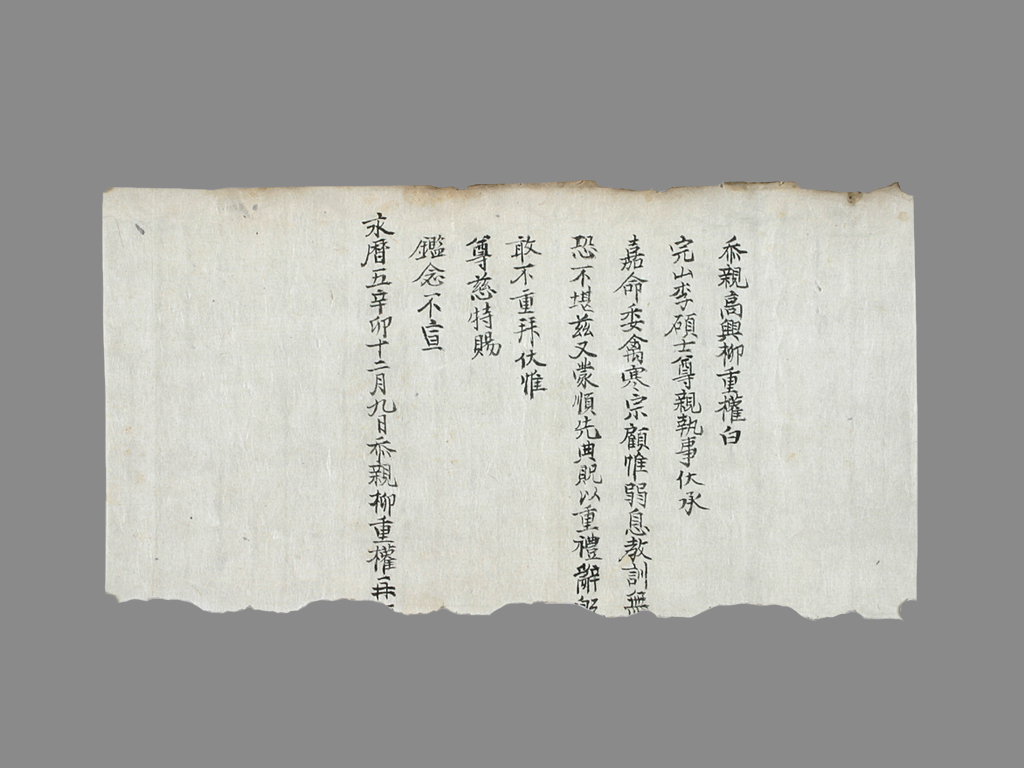 忝親高興柳重㩲白
完山李碩士尊親執事伏承
嘉命委禽寒宗顧惟弱息教訓無
恐不堪玆又蒙順先典貺以重禮辭
敢不重拜伏惟
尊慈特賜
鑑念不宣
永曆五辛卯十二月九日忝親柳重㩲再